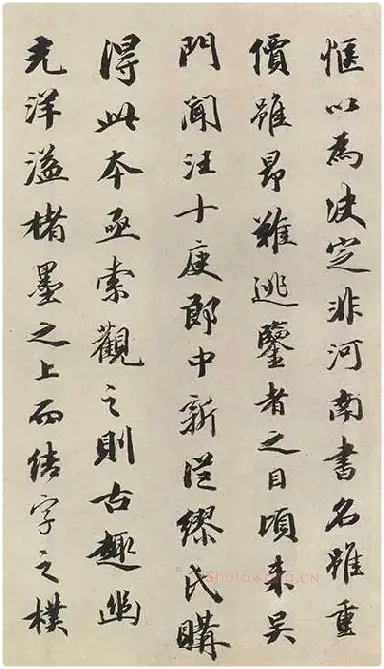 愜以為决定非河南書名雖重
價雖昂難逃鑒者之目頃来吳
門聞汪十庚郎中新從繆氏購
得此本亟索觀之則古趣幽
光洋溢楮墨之上而結字之樸